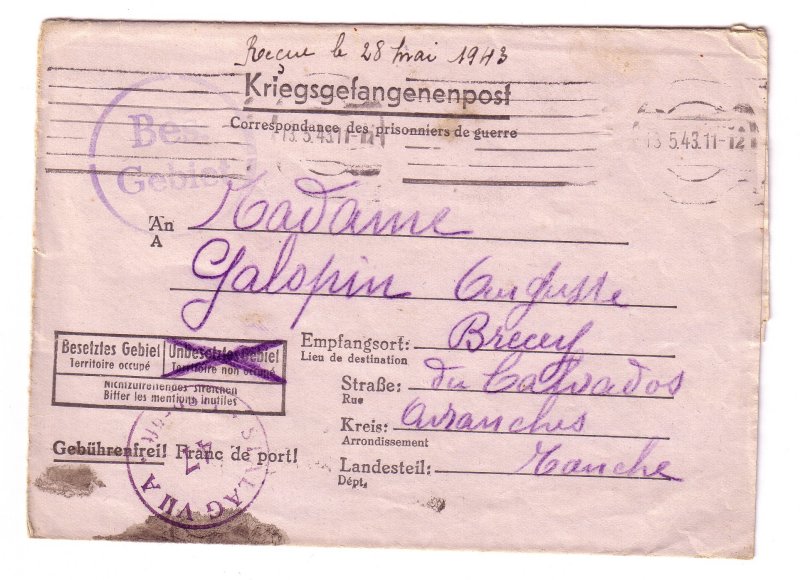 Reçue le 28 mai 1943
Kriegsgefangenenpost
Correspondance des prisonniers de guerre
13.5.43.11-12
13.5.43.11-12
Bes.
Gebiet
An Madame
A
Galopin Auguste
Besetztes Gebiet
Territoire occupé
Unbesetztes Gebiet
Territoire non occupé
Nichtzutreffendes streichen
Biffer les mentions inutiles
Empfangsort: Brecey
Lieu de destination
Straße: du Calvados
Rue
Kreis: Avranches
Arrondissement
Landesteil: Manche
Dépt.
Gebührenfrei! Franc de port!
STALAG VII A